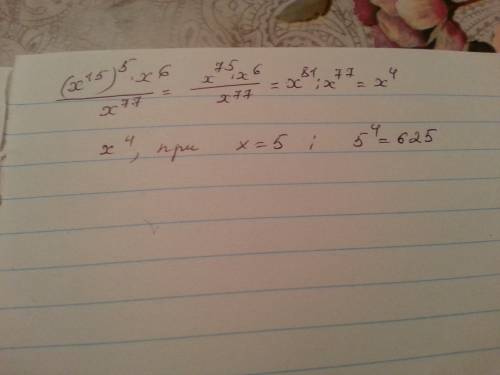 (x^15)^5 · x^6 / x^77 = x^75 · x^6 / x^77 = x^81 : x^77 = x^4
x^4, при x = 5 ; 5^4 = 625